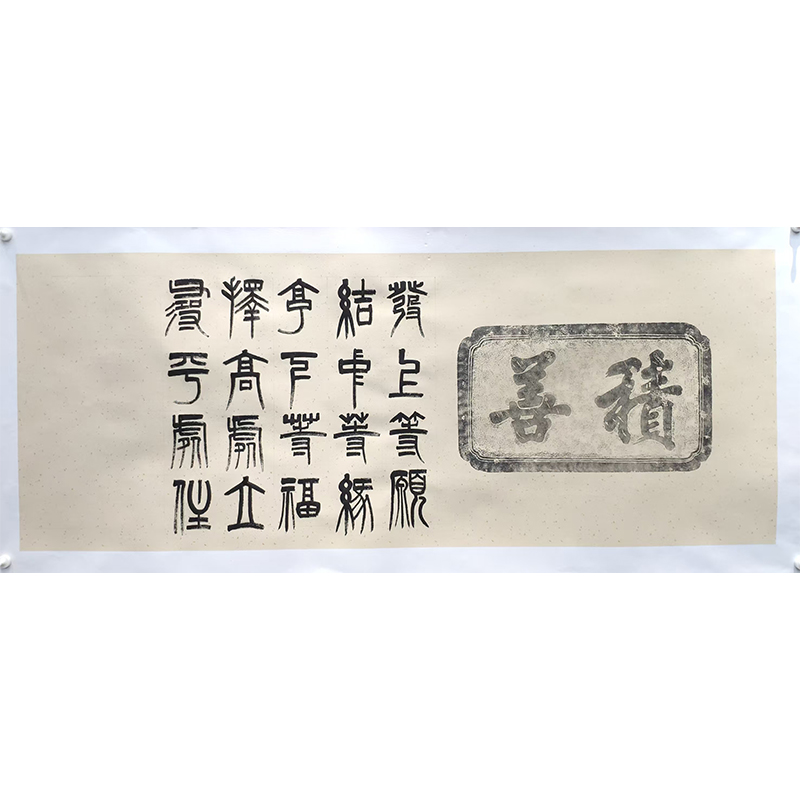 積善
發上等願
結中等緣
享下等福
擇高處立
尋平處住